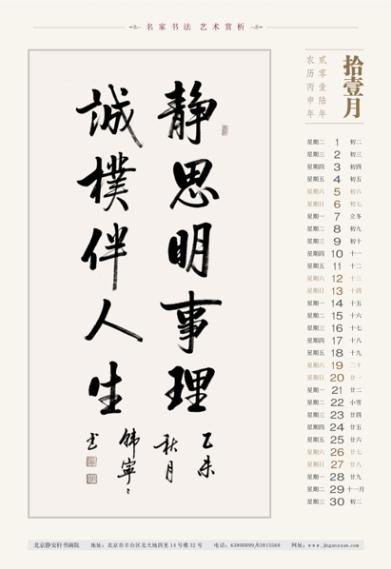 名家书法 艺术赏析
静思明事理
誠樸伴人生
乙未
秋月
韩宁
书
拾壹月
贰零壹陆年
农历丙申年
星期二 1 初二
星期三 2 初三
星期四 3 初四
星期五 4 初五
星期六 5 初六
星期日 6 初七
星期一 7 立冬
星期二 8 初九
星期三 9 初十
星期四 10 十一
星期五 11 十二
星期六 12 十三
星期日 13 十四
星期一 14 十五
星期二 15 十六
星期三 16 十七
星期四 17 十八
星期五 18 十九
星期六 19 二十
星期日 20 廿一
星期一 21 廿二
星期二 22 小雪
星期三 23 廿四
星期四 24 廿五
星期五 25 廿六
星期六 26 廿七
星期日 27 廿八
星期一 28 廿九
星期二 29 十一月
星期三 30 初二
北京静安轩书画院 地址：北京市丰台区北大地四里14号楼32号 电话：